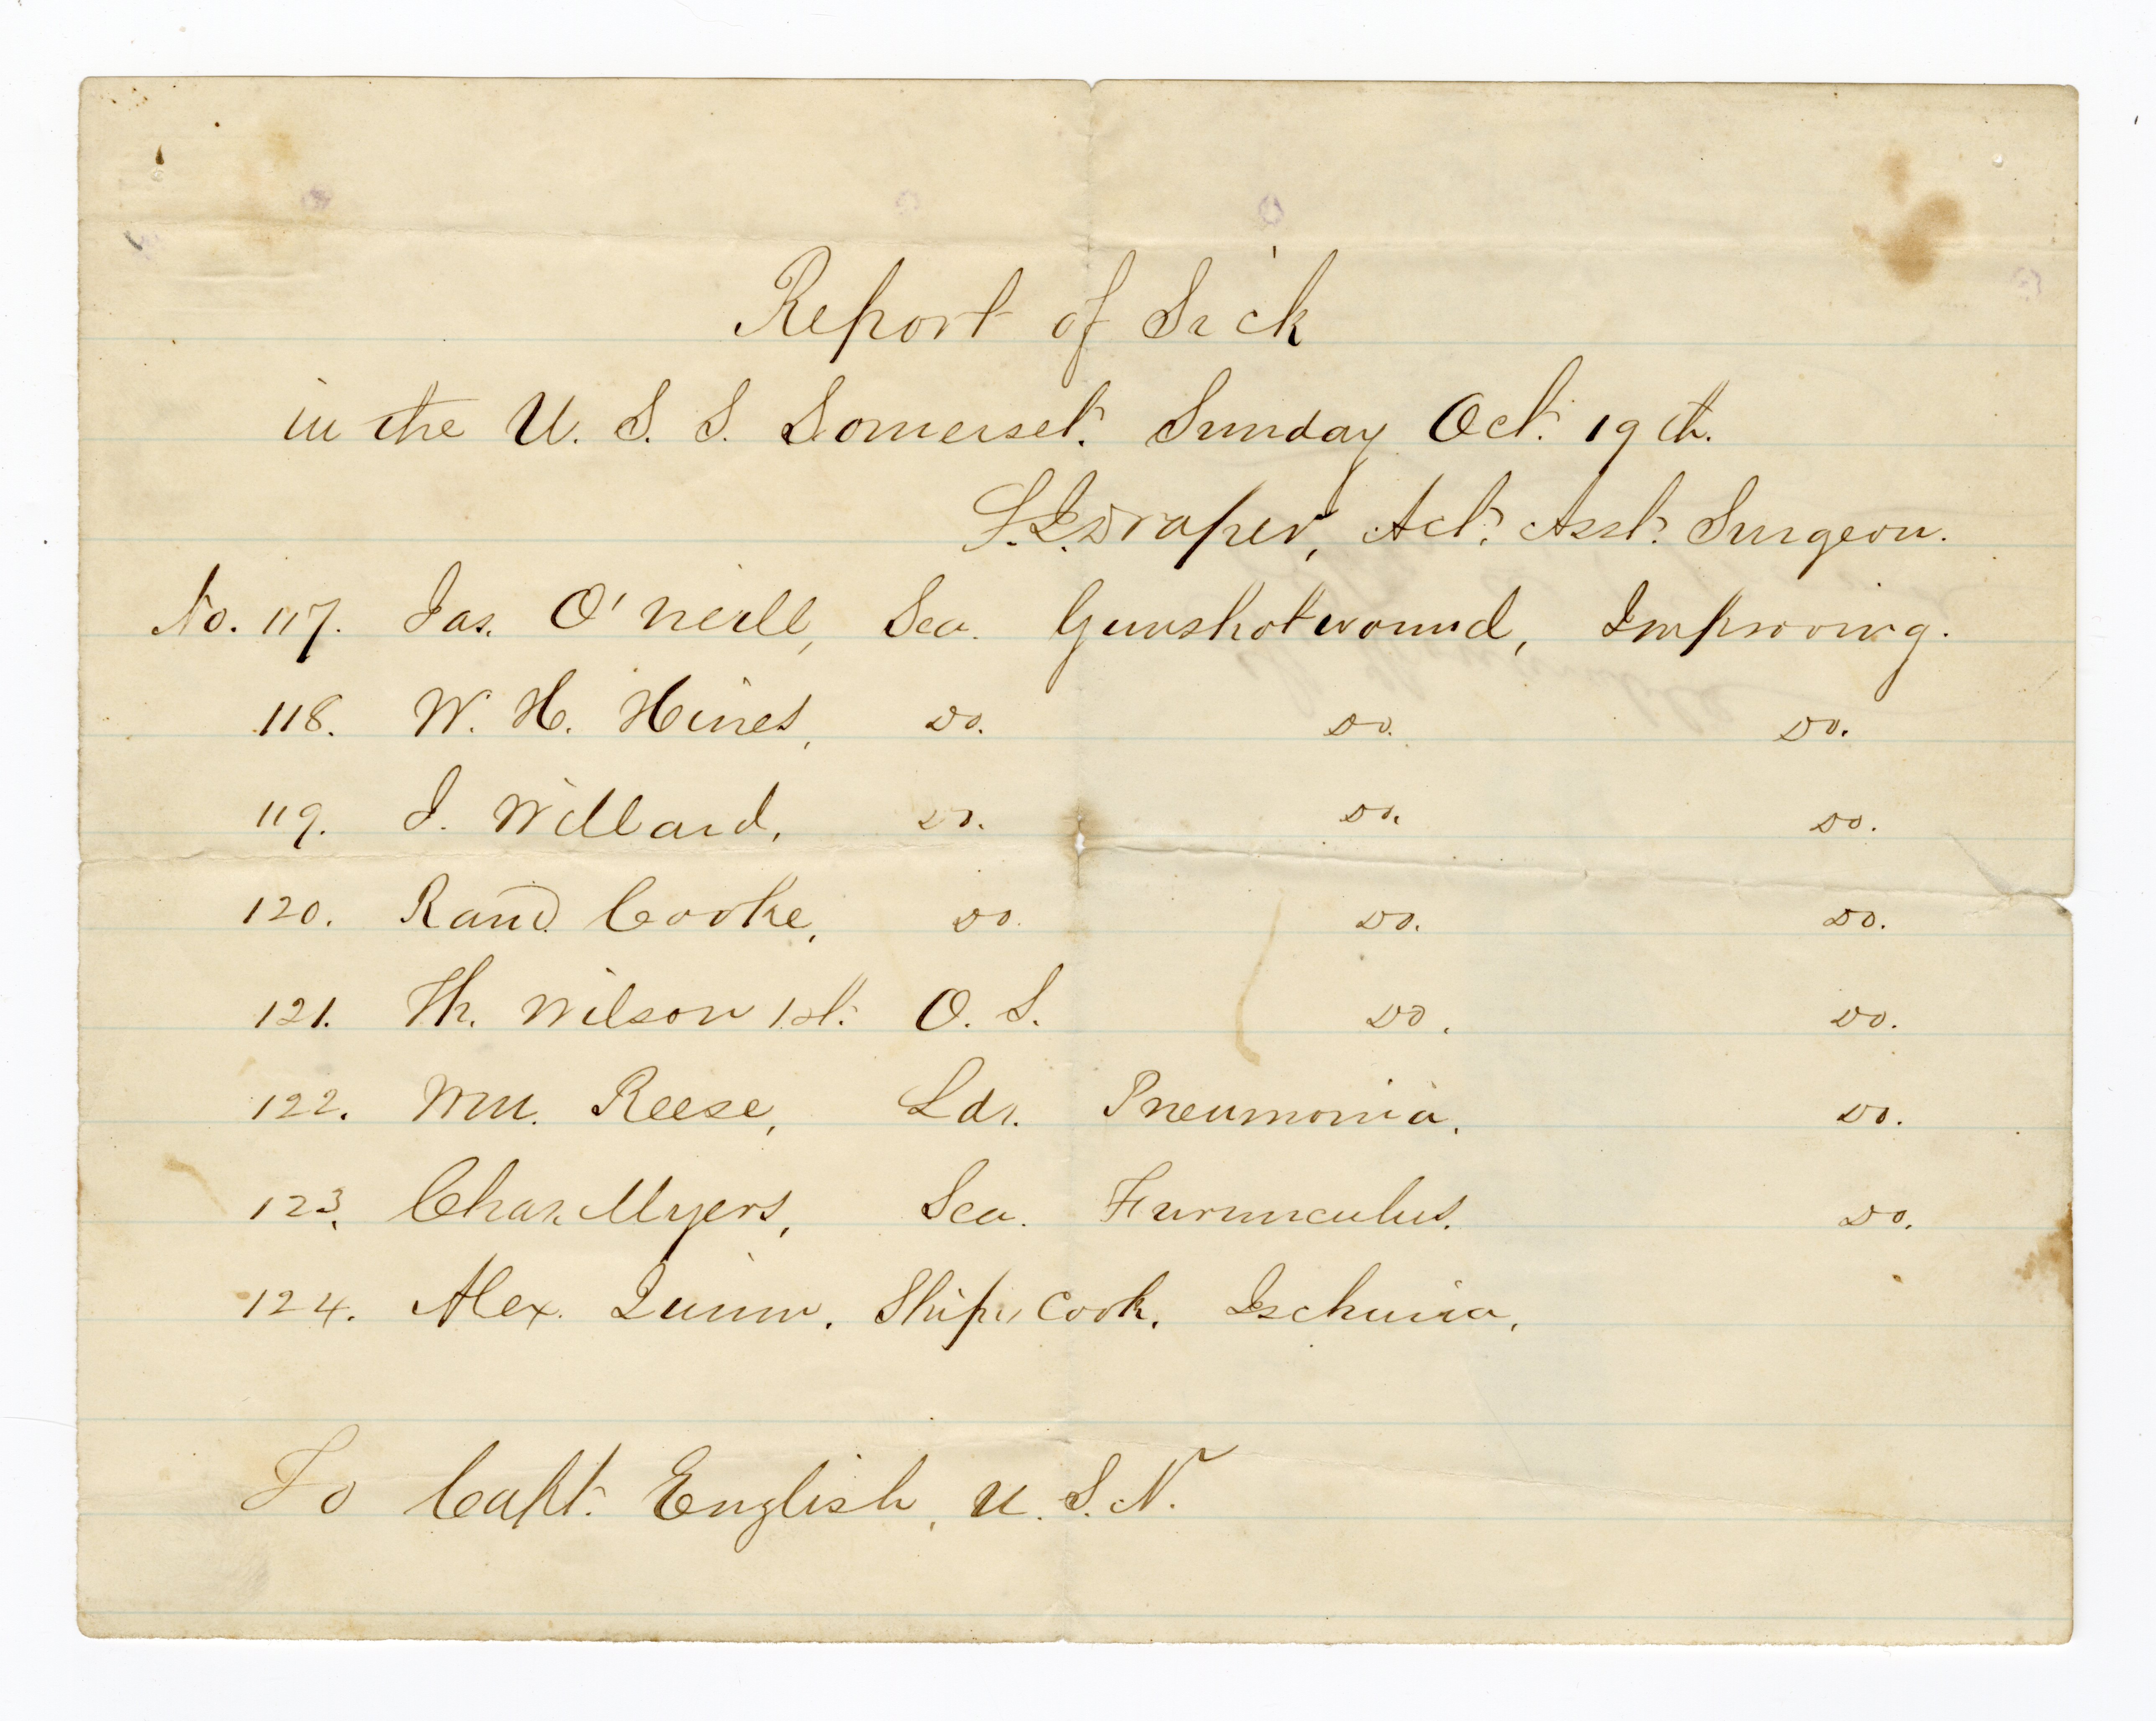 Report of Sick
in the U. S. S. Somerset. Sunday Oct. 19th.
S. I. Draper, Act. Asst. Surgeon.
No. 117. Jas. O'Neill, Sea. Gunshot wound, Improving.
118. W. H. Hines, Do. Do. Do.
119. J. Willard, Do. Do. Do.
120. Rand. Cooke, Do. Do. Do.
121. Th. Wilson 1st. O. S. Do. Do.
122. Wm. Reese, Lds. Pneumonia. Do.
123. Chas. Myers, Sea. Furunculus. Do.
124. Alex. Quinn. Ships Cook. Ischuria.
To Capt. English, U. S. N.